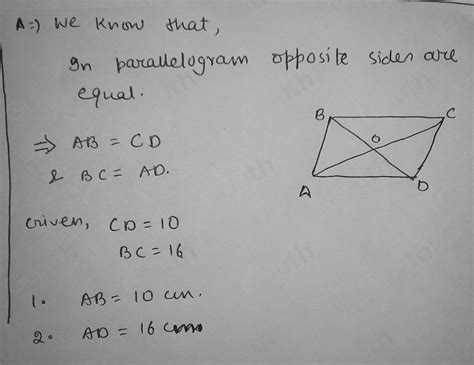 A⇒) We know that,
In parallelogram opposite sides are
equal.
⇒ AB = CD
& BC = AD.
Given, CD = 10
BC = 16
1. AB = 10 cm.
2. AD = 16 cm
B C
O
A D